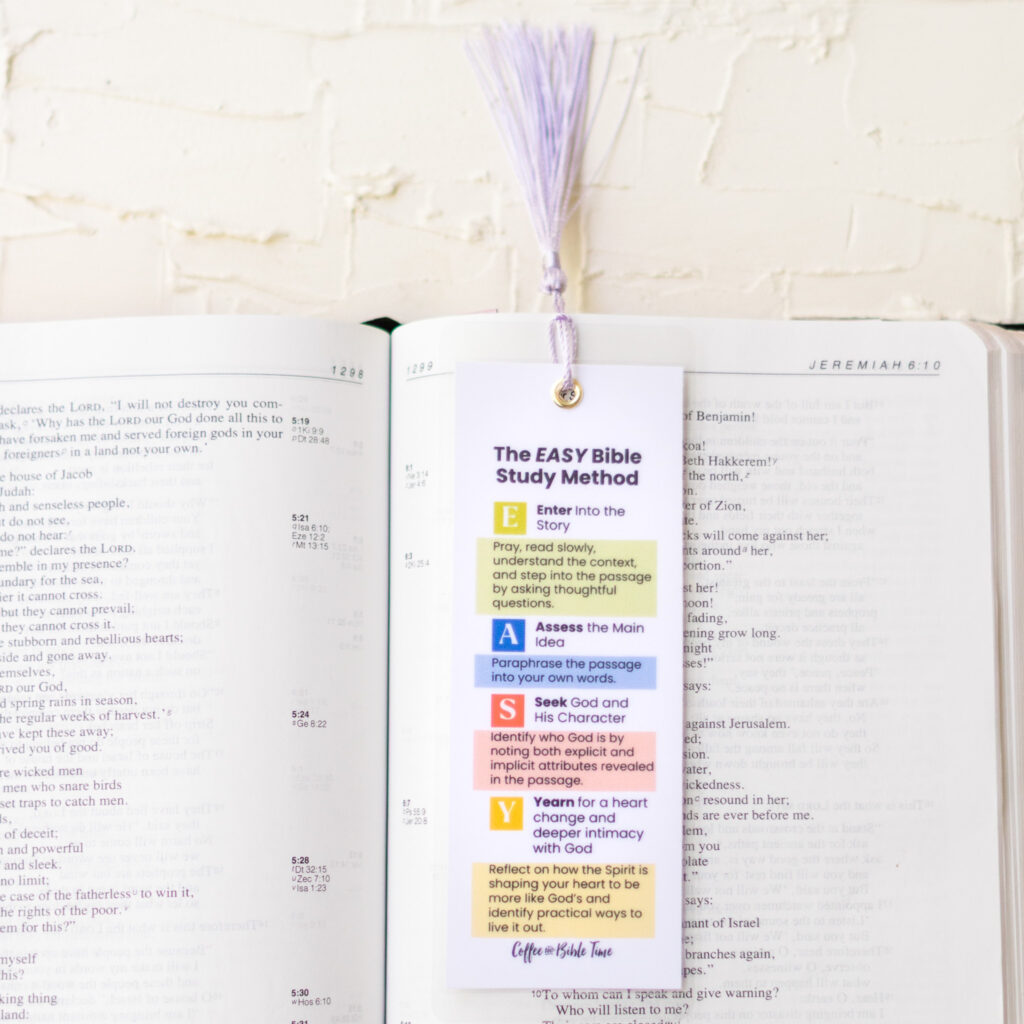 1298
declares the LORD, "I will not destroy you com-
ask, 'Why has the LORD our God done all this to
have forsaken me and served foreign gods in your
foreigners in a land not your own.'
he house of Jacob
Judah:
h and senseless people,
t do not see,
do not hear:
me?" declares the LORD.
emble in my presence?
undary for the sea,
ier it cannot cross.
but they cannot prevail;
they cannot cross it.
e stubborn and rebellious hearts;
side and gone away.
emselves,
RD our God,
d spring rains in season,
he regular weeks of harvest.'
ve kept these away;
rived you of good.
re wicked men
men who snare birds
set traps to catch men.
ds,
of deceit;
h and powerful
and sleek.
no limit;
e case of the fatherless to win it,
he rights of the poor.
em for this?"
myself
this?
king thing
land:
5:19
1Ki 9:9
Dt 28:48
5:21
Isa 6:10;
Eze 12:2
Mt 13:15
5:24
Ge 8:22
5:28
Dt 32:15
Zec 7:10
Isa 1:23
5:30
Hos 6:10
1299
JEREMIAH 6:10
The EASY Bible
Study Method
E
Enter Into the
Story
Pray, read slowly,
understand the context,
and step into the passage
by asking thoughtful
questions.
A
Assess the Main
Idea
Paraphrase the passage
into your own words.
S
Seek God and
His Character
Identify who God is by
noting both explicit and
implicit attributes revealed
in the passage.
Y
Yearn for a heart
change and
deeper intimacy
with God
Reflect on how the Spirit is
shaping your heart to be
more like God's and
identify practical ways to
live it out.
Coffee and Bible Time
of Benjamin!
koa!
Beth Hakkerem!
the north,
on.
er of Zion,
te.
cks will come against her;
nts around her,
portion."
st her!
noon!
fading,
ening grow long.
night
ses!"
says:
against Jerusalem.
ed;
sion.
vater,
ickedness.
on resound in her;
ds are ever before me.
lem,
m you
olate
t."
says:
nant of Israel
e;
branches again,
apes."
10To whom can I speak and give warning?
Who will listen to me?